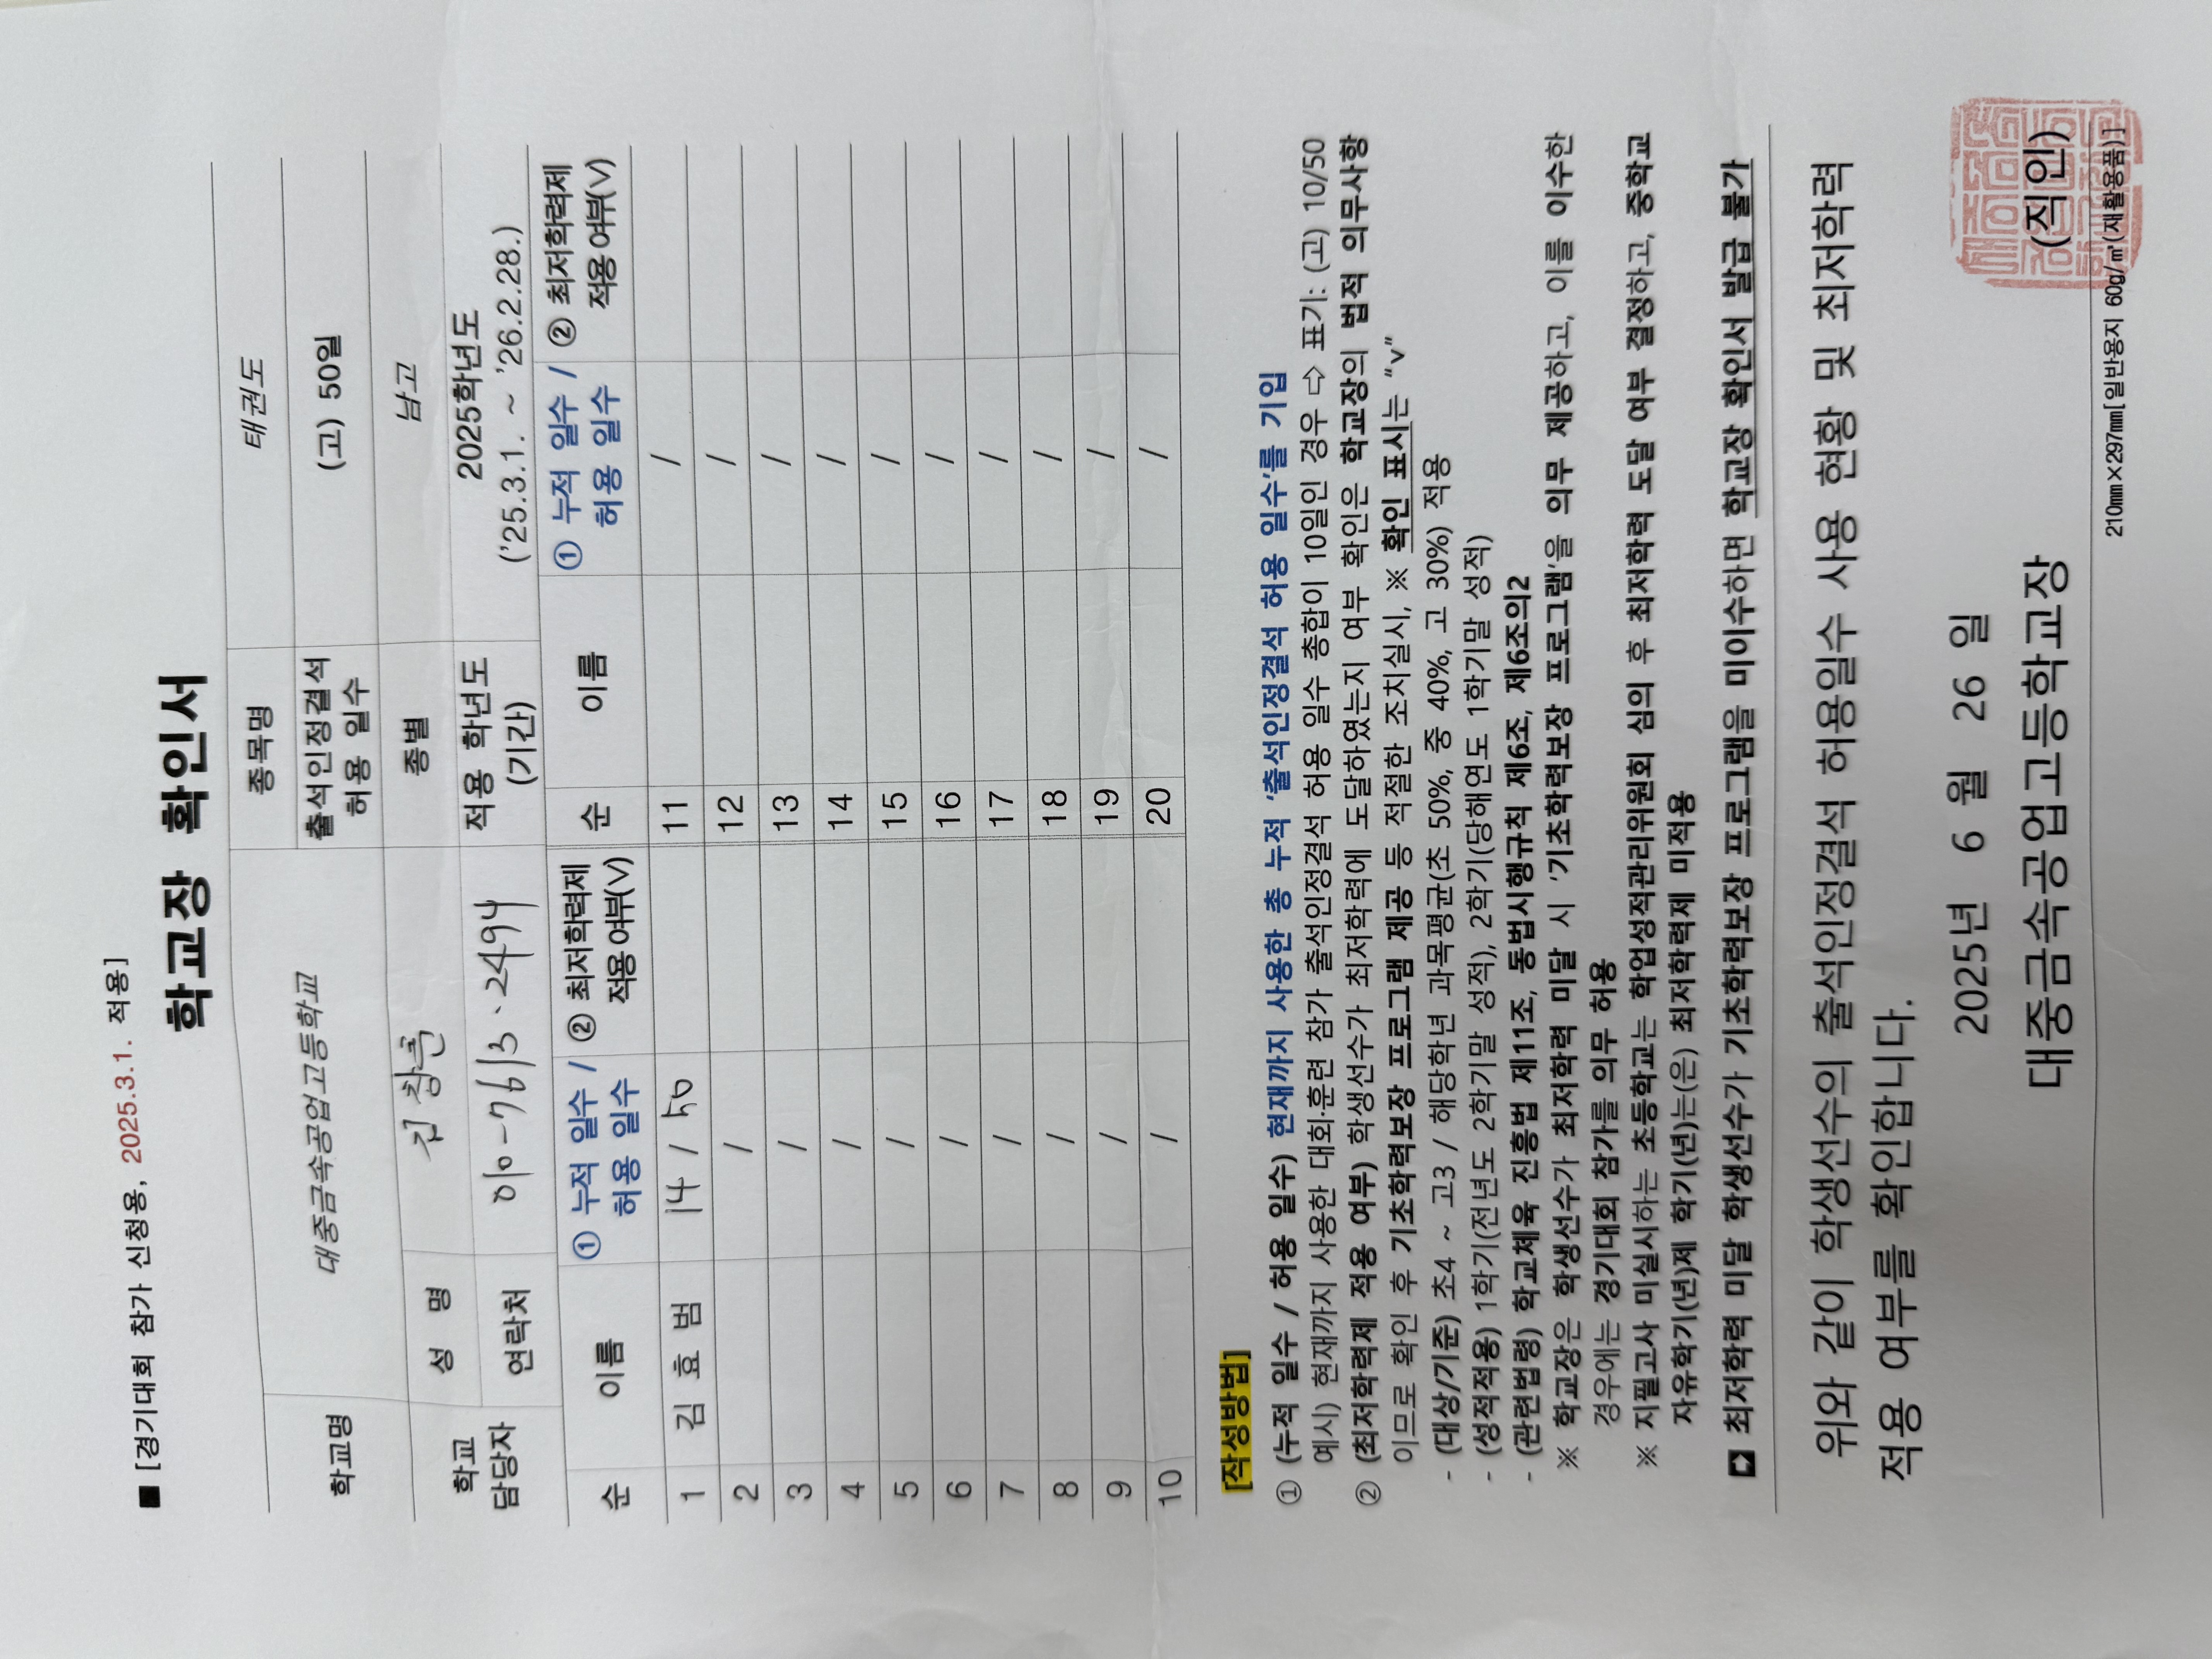 ■ [경기대회 참가 신청용, 2025.3.1. 적용]
학교장 확인서
학교명 대중금속공업고등학교 종목명 태권도
출석인정결석 허용 일수 (고) 50일
학교 담당자 성 명 김창 종별 남고
연락처 010-7613·2494 적용 학년도 (기간) 2025학년도 ('25.3.1. ~ '26.2.28.)
순 이름 ① 누적 일수 / 허용 일수 ② 최저학력제 적용 여부(V) 순 이름 ① 누적 일수 / 허용 일수 ② 최저학력제 적용 여부(V)
1 김 효 범 14 / 50 11 /
2 / 12 /
3 / 13 /
4 / 14 /
5 / 15 /
6 / 16 /
7 / 17 /
8 / 18 /
9 / 19 /
10 / 20 /
[작성방법]
① (누적 일수 / 허용 일수) 현재까지 사용한 총 누적 '출석인정결석 허용 일수'를 기입
예시) 현재까지 사용한 대회·훈련 참가 출석인정결석 허용 일수 총합이 10일인 경우 ⇨ 표기: (고) 10/50
② (최저학력제 적용 여부) 학생선수가 최저학력에 도달하였는지 여부 확인은 학교장의 법적 의무사항
이므로 확인 후 기초학력보장 프로그램 제공 등 적절한 조치실시, ※ 확인 표시는 "v"
- (대상/기준) 초4 ~ 고3 / 해당학년 과목평균(초 50%, 중 40%, 고 30%) 적용
- (성적적용) 1학기(전년도 2학기말 성적), 2학기(당해연도 1학기말 성적)
- (관련법령) 학교체육 진흥법 제11조, 동법시행규칙 제6조, 제6조의2
※ 학교장은 학생선수가 최저학력 미달 시 '기초학력보장 프로그램'을 의무 제공하고, 이를 이수한
경우에는 경기대회 참가를 의무 허용
※ 지필고사 미실시하는 초등학교는 학업성적관리위원회 심의 후 최저학력 도달 여부 결정하고, 중학교
자유학기(년)제 학기(년)는(은) 최저학력제 미적용
최저학력 미달 학생선수가 기초학력보장 프로그램을 미이수하면 학교장 확인서 발급 불가
위와 같이 학생선수의 출석인정결석 허용일수 사용 현황 및 최저학력
적용 여부를 확인합니다.
2025년 6 월 26 일
대중금속공업고등학교장 (직인)
210㎜×297㎜[일반용지 60g/㎡(재활용품)]